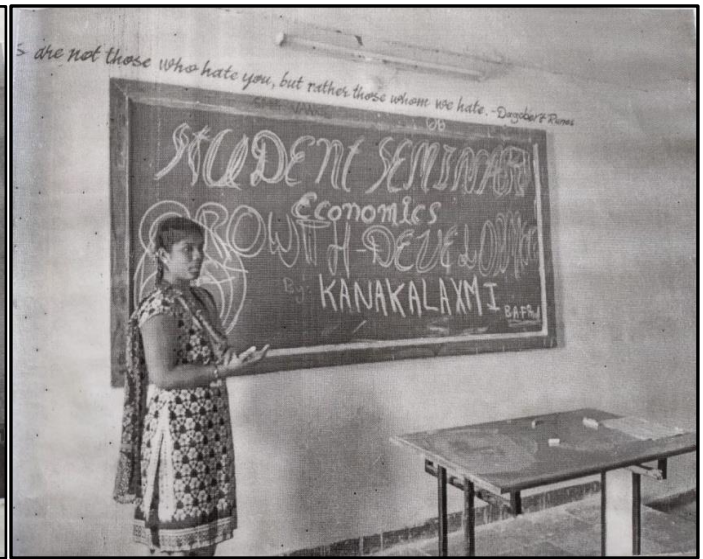 are not those who hate you, but rather those whom we hate. -Dagobert Runes
STUDENT SEMINAR
Economics
GROWTH-DEVELOPMENT
By: KANAKALAXMI